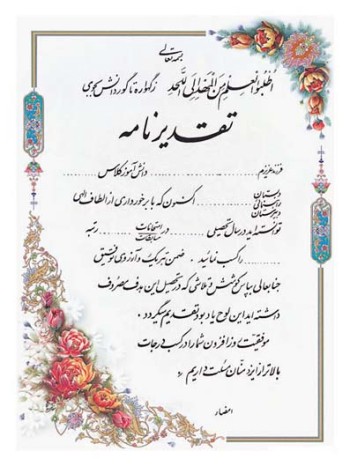 بسمه تعالی
اطلبوا العلم من المهد الی اللحد ز گهواره تا گور دانش بجوی
تقدیرنامه
فرزند عزیزم .................... دانش آموز کلاس ..........
دبستان
راهنمائی .......... اکنون که با برخورداری از الطاف الهی
دبیرستان
توانسته اید در سال تحصیلی .......... در امتحانات .......... رتبه
مسابقات
.......... را کسب نمائید . ضمن تبریک و آرزوی توفیق
جنابعالی بپاس کوشش و تلاشی که در تحصیل این هدف مصروف
داشته اید این لوح یادبود تقدیم میگردد .
موفقیت روزافزون شما را در کسب درجات
بالاتر از ایزد منان مسئلت داریم
امضاء